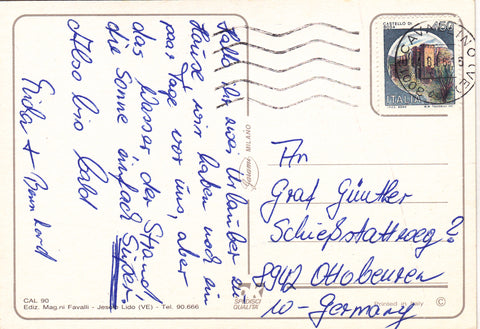 Hallo Ihr zwei Urlauber zu
Hause wir haben noch ein
paar Tage vor uns, aber
das Wasser der Strand
die Sonne einfach Super.
Also bis bald
+ Bernhard
CASTELLO DI
450
ITALIA
CAVALLINO (VE)
Garami MILANO
An
Graf Günther
Schießstattweg 2
8942 Ottobeuren
W-Germany
CAL 90
Ediz. Mag.ni Favalli - Jesolo Lido (VE) - Tel. 90.666
SPEDISCI
QUALITÀ
Printed in Italy